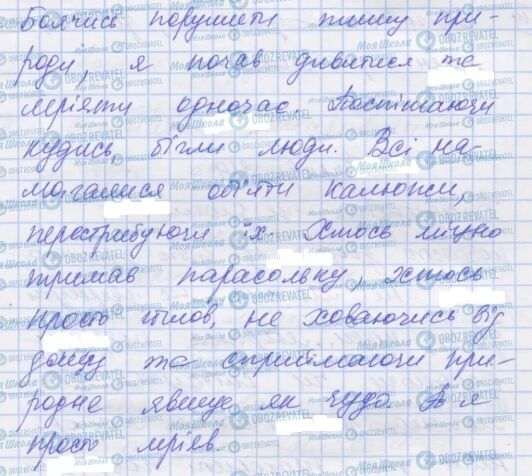 Боячись порушити тишу при-
роди, я почав дивитися та
мріяти одночас. Поспішаючи
кудись, бігли люди. Всі на-
магалися обійти калюжи,
перестрибуючи їх. Хтось міцно
тримав парасольку, хтось
просто йшов, не ховаючись від
дощу та сприймаючи при-
родне явище як чудо. А я
просто мріяв.